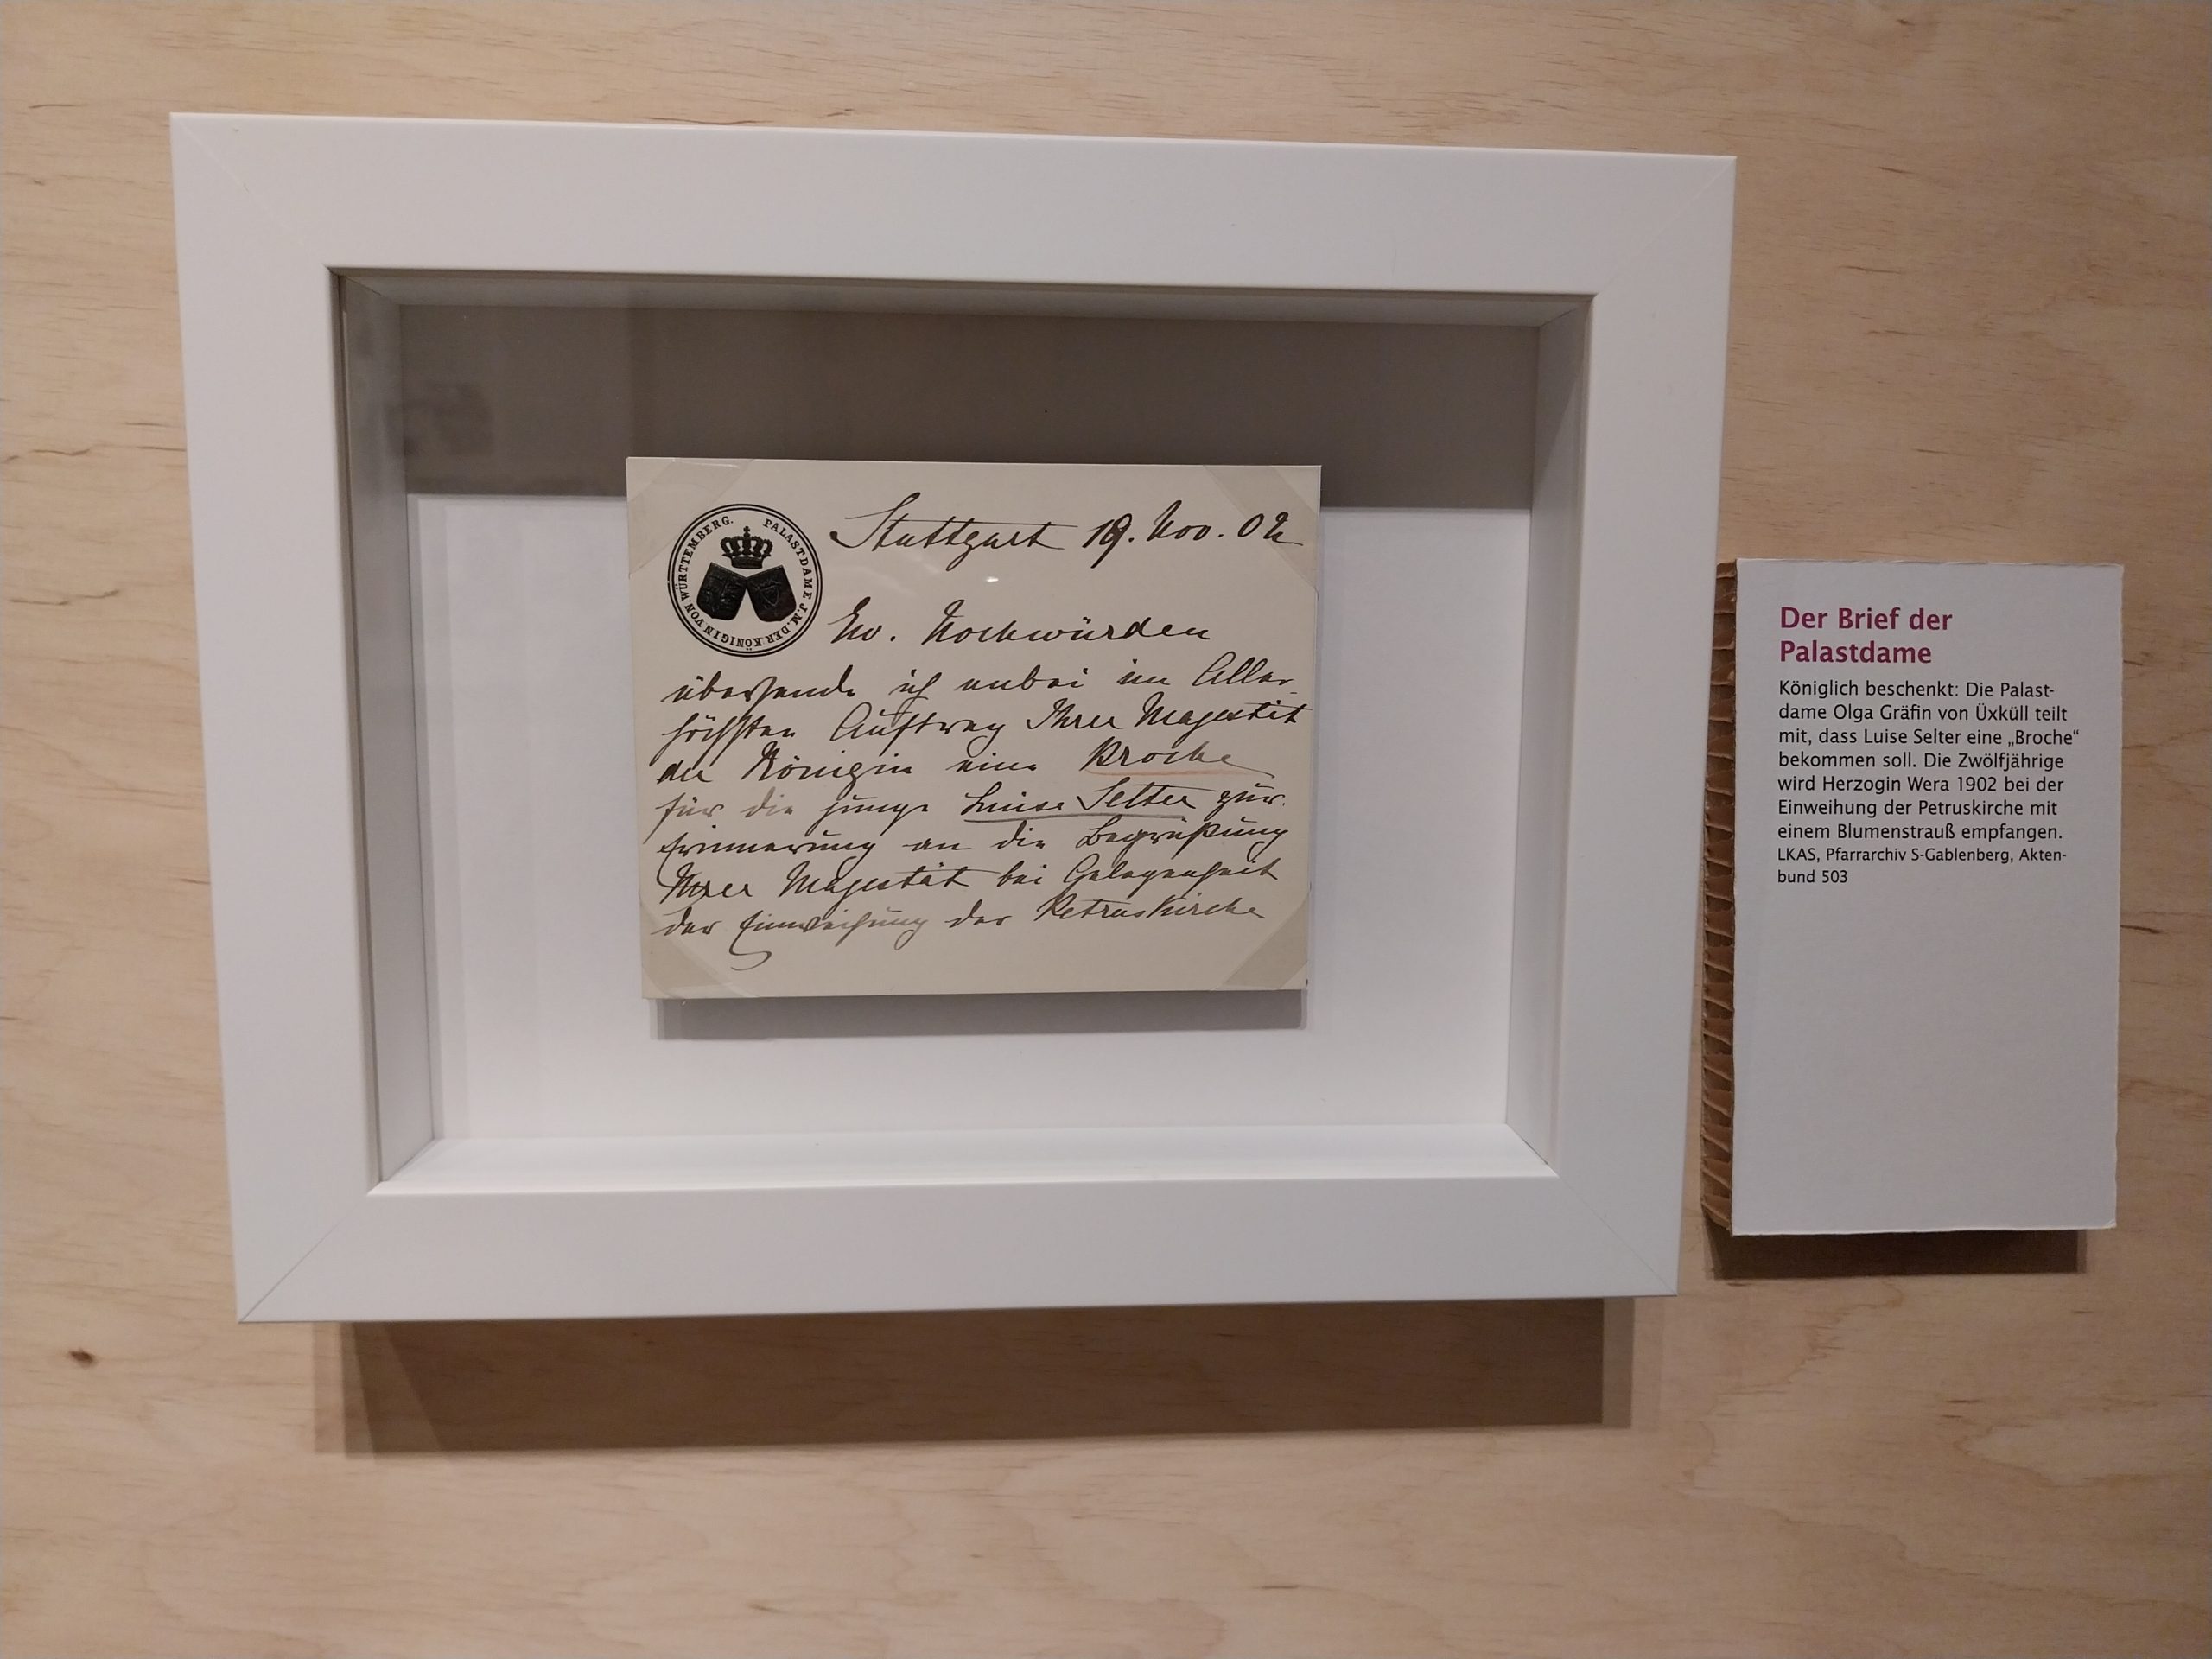 PALASTDAME J. M. DER KÖNIGIN VON WÜRTTEMBERG.
Stuttgart 19. Nov. 02
Ew. Hochwürden
übersende ich anbei im Aller-
höchsten Auftrag Ihrer Majestät
der Königin eine Broche
für die junge Luise Selter zur
Erinnerung an die Begrüßung
Ihrer Majestät bei Gelegenheit
der Einweihung der Petruskirche
Der Brief der
Palastdame
Königlich beschenkt: Die Palast-
dame Olga Gräfin von Üxküll teilt
mit, dass Luise Selter eine „Broche“
bekommen soll. Die Zwölfjährige
wird Herzogin Wera 1902 bei der
Einweihung der Petruskirche mit
einem Blumenstrauß empfangen.
LKAS, Pfarrarchiv S-Gablenberg, Akten-
bund 503